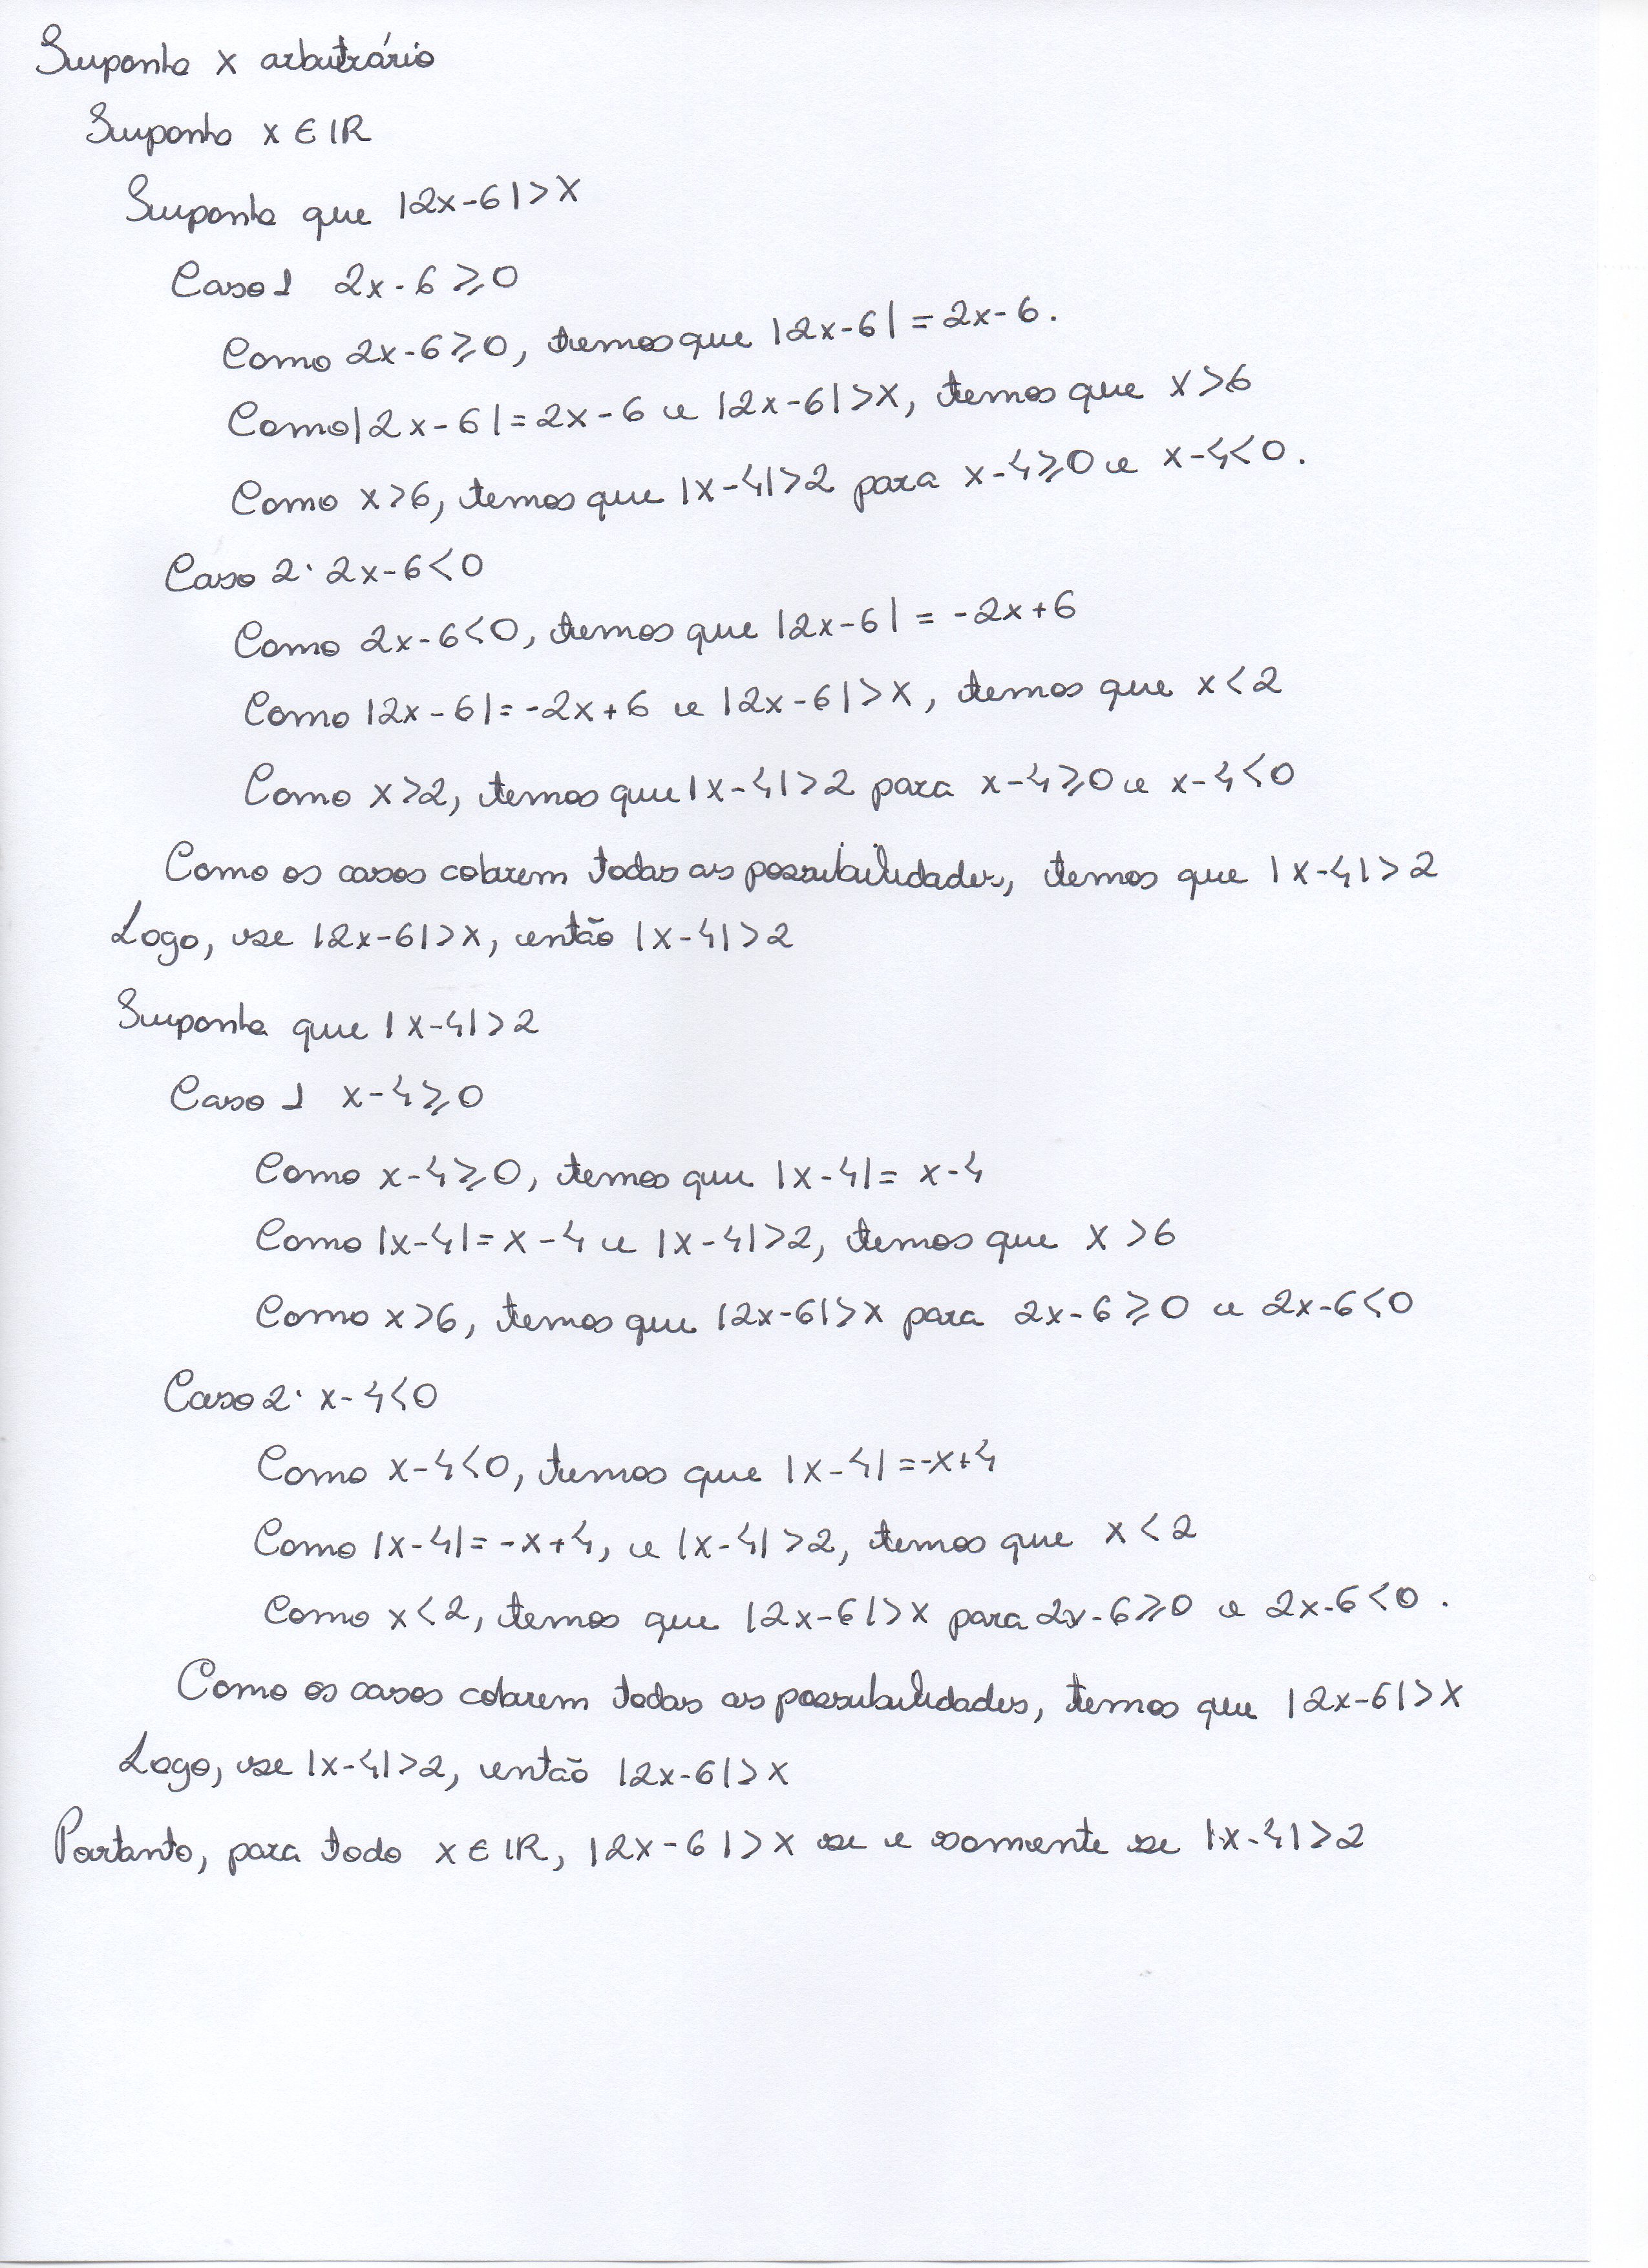 Suponha x arbitrário
Suponha x ∈ IR
Suponha que |2x-6|>x
Caso 1 2x-6≥0
Como 2x-6≥0, temos que |2x-6|=2x-6.
Como |2x-6|=2x-6 e |2x-6|>x, temos que x>6
Como x>6, temos que |x-4|>2 para x-4≥0 e x-4<0.
Caso 2. 2x-6<0
Como 2x-6<0, temos que |2x-6| = -2x+6
Como |2x-6|=-2x+6 e |2x-6|>x, temos que x<2
Como x>2, temos que |x-4|>2 para x-4≥0 e x-4<0
Como os casos cobrem todas as possibilidades, temos que |x-4|>2
Logo, se |2x-6|>x, então |x-4|>2
Suponha que |x-4|>2
Caso 1 x-4≥0
Como x-4≥0, temos que |x-4|= x-4
Como |x-4|=x-4 e |x-4|>2, temos que x>6
Como x>6, temos que |2x-6|>x para 2x-6≥0 e 2x-6<0
Caso 2. x-4<0
Como x-4<0, temos que |x-4|=-x+4
Como |x-4|=-x+4, e |x-4|>2, temos que x<2
Como x<2, temos que |2x-6|>x para 2x-6≥0 e 2x-6<0.
Como os casos cobrem todas as possibilidades, temos que |2x-6|>x
Logo, se |x-4|>2, então |2x-6|>x
Portanto, para todo x ∈ IR, |2x-6|>x se e somente se |x-4|>2